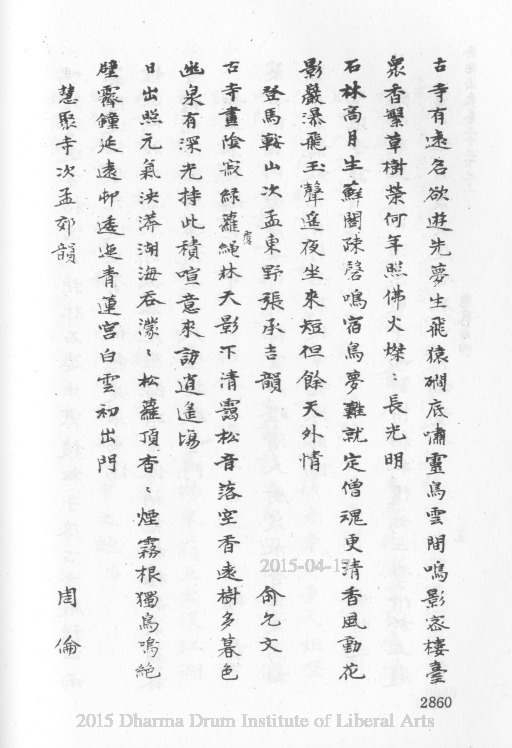 古寺有遠名欲遊先夢生飛猿磵底嘯靈鳥雲間鳴影密棲臺
衆香繫草樹榮何年照佛火燦〻長光明
石林高月生蘇閣疎磬鳴宿鳥夢難就定僧魂更清香風動花
影巖瀑飛玉聲遙夜坐來短但餘天外情
登馬鞍山次孟東野張承吉韻 俞允文
古寺晝陰寂綠蘿繩虔林天影下清靄松音落空香遠樹多暮色
幽泉有深光持此積喧意來訪逍遙場
日出照元氣泱漭湖海吞濛〻松蘿頂杳〻煙霧根獨鳥鳴絕
壁霽鐘延遠邨透迤青蓮宮白雲初出門
慧聚寺次孟郊韻 周倫
2015-04-17
2860
2015 Dharma Drum Institute of Liberal Arts